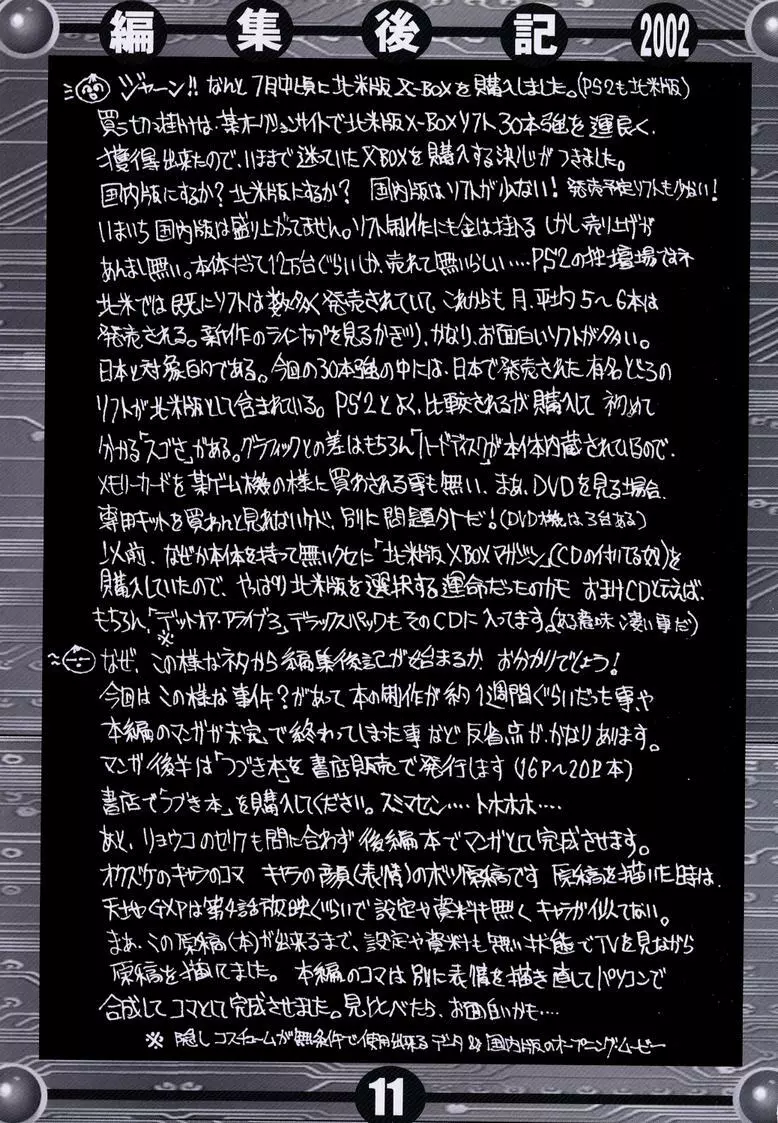 編集後記 2002
ジャーン!! なんと7月中頃に北米版X-BOXを購入しました。(PS2も北米版)
買う切っ掛けは、某オークションサイトで北米版X-BOXソフト30本強を運良く、
獲得出来たので、いままで迷っていたXBOXを購入する決心がつきました。
国内版にするか? 北米版にするか? 国内版はソフトが少ない! 発売予定ソフトも少ない!
いまいち国内版は盛り上がってません。ソフト制作にも金は掛る しかし売り上げが
あんまし無い。本体だって12万台ぐらいしか、売れて無いらしい‥‥PS2の独壇場ですネ
北米では既にソフトは数多く発売されていて、これからも月、平均5〜6本は
発売される。新作のラインナップを見るかぎり、かなり、お面白いソフトが多い。
日本と対象的である。今回の30本強の中には、日本で発売された有名どころの
ソフトが北米版として含まれている。PS2とよく、比較されるが購入して 初めて
分かる「スゴさ」がある。グラフィックとの差はもちろん「ハードディスク」が本体内蔵されているので、
メモリーカードを某ゲーム機の様に買わされる事も無い、まあ、DVDを見る場合、
専用キットを買わんと見れないケド、別に問題外だ!(DVD機は3台ある)
以前、なぜか本体を持って無いクセに「北米版XBOXマガジン」(CDの付いてる奴)を
購入していたので、やっぱり北米版を選択する運命だったのかも おまけCDと云えば、
もちろん、「デッドオア・アライブ3」デラックスパックもそのCDに入ってます。(ある意味凄い事だ)
※
なぜ、この様なネタから編集後記が始まるか お分かりでしょう!
今回はこの様な事件?があって本の制作が約1週間ぐらいだった事、や
本編のマンガが未完、で終わってしまった事など反省点が、かなりあります。
マンガ後半は「つづき本」を書店販売で発行します(16P〜20P本)
書店で「つづき本」を購入してください。スミマセン‥‥トホホホ‥‥
あと、リョウコのゼクも間に合わず後編本でマンガとして完成させます。
オクズケのキャラのコマ キャラの顔(表情)のボツ原稿です 原稿を描いた時は、
天地GXPは第4話放映ぐらいで設定や資料も無く キャラが似てない。
まあ、この原稿(本)が出来るまで、設定や資料も無い状態でTVを見ながら
原稿を描てました。 本編のコマは別に表情を描き直してパソコンで
合成してコマとして完成させました。見比べたら、お面白いかも‥‥
※ 隠しコスチュームが無条件で使用出来るデータ&国内版のオープニング・ムービー
11